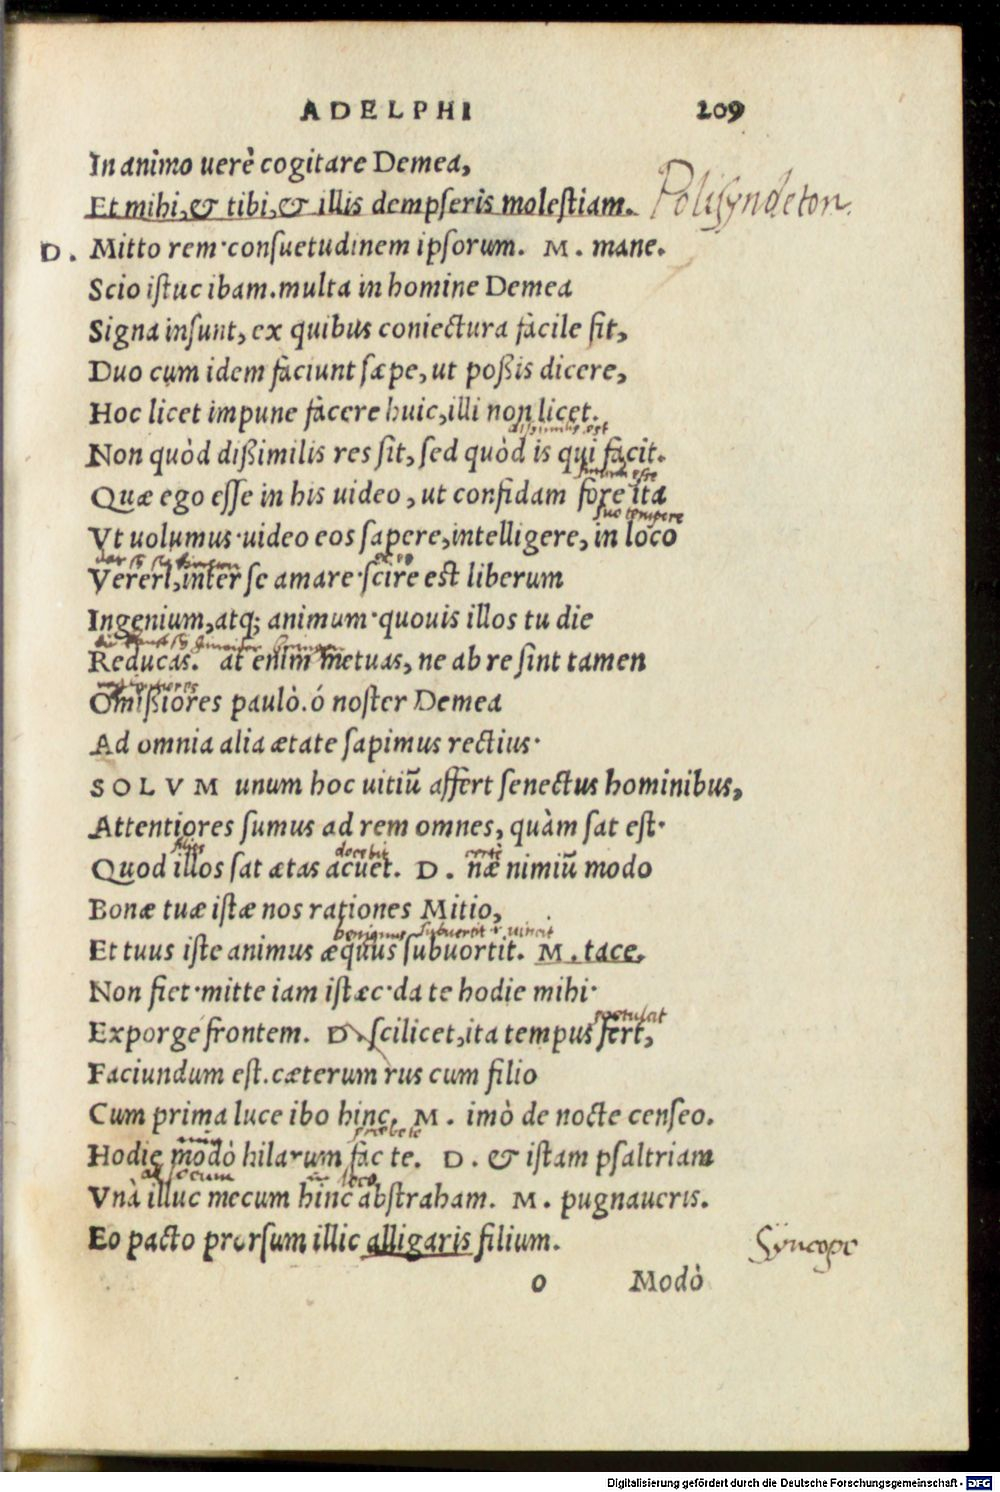 ADELPHI 209
In animo uerè cogitare Demea,
Et mihi, & tibi, & illis dempseris molestiam. Polisyndeton.
D. Mitto rem·consuetudinem ipsorum. M. mane.
Scio istuc ibam.multa in homine Demea
Signa insunt, ex quibus coniectura facile fit,
Duo cum idem faciunt sæpe, ut poßis dicere,
Hoc licet impune facere huic, illi non licet.
dissimilis est
Non quòd dißimilis res sit, sed quòd is qui facit.
Quæ ego esse in his uideo, ut confidam fore ita
suo tempore
Vt uolumus·uideo eos sapere, intelligere, in loco
Vereri, inter se amare·scire est liberum
Ingenium, atq; animum·quouis illos tu die
Reducas. at enim metuas, ne ab re sint tamen
Omißiores paulò.ó noster Demea
Ad omnia alia ætate sapimus rectius·
SOLVM unum hoc uitiū affert senectus hominibus,
Attentiores sumus ad rem omnes, quàm sat est·
filios docebit certè
Quod illos sat ætas acuet. D. næ nimiū modo
Bonæ tuæ istæ nos rationes Mitio,
benignus subuertit uincit
Et tuus iste animus æquus subuortit. M. tace.
Non fiet·mitte iam istæc·da te hodie mihi·
postulat
Exporge frontem. D. scilicet, ita tempus fert,
Faciundum est.cæterum rus cum filio
Cum prima luce ibo hinc. M. imò de nocte censeo.
præbe te
Hodie modò hilarum fac te. D. & istam psaltriam
ad locum loco
Vnà illuc mecum hinc abstraham. M. pugnaueris.
Eo pacto prorsum illic alligaris filium. Syncope
o Modò
Digitalisierung gefördert durch die Deutsche Forschungsgemeinschaft - DFG